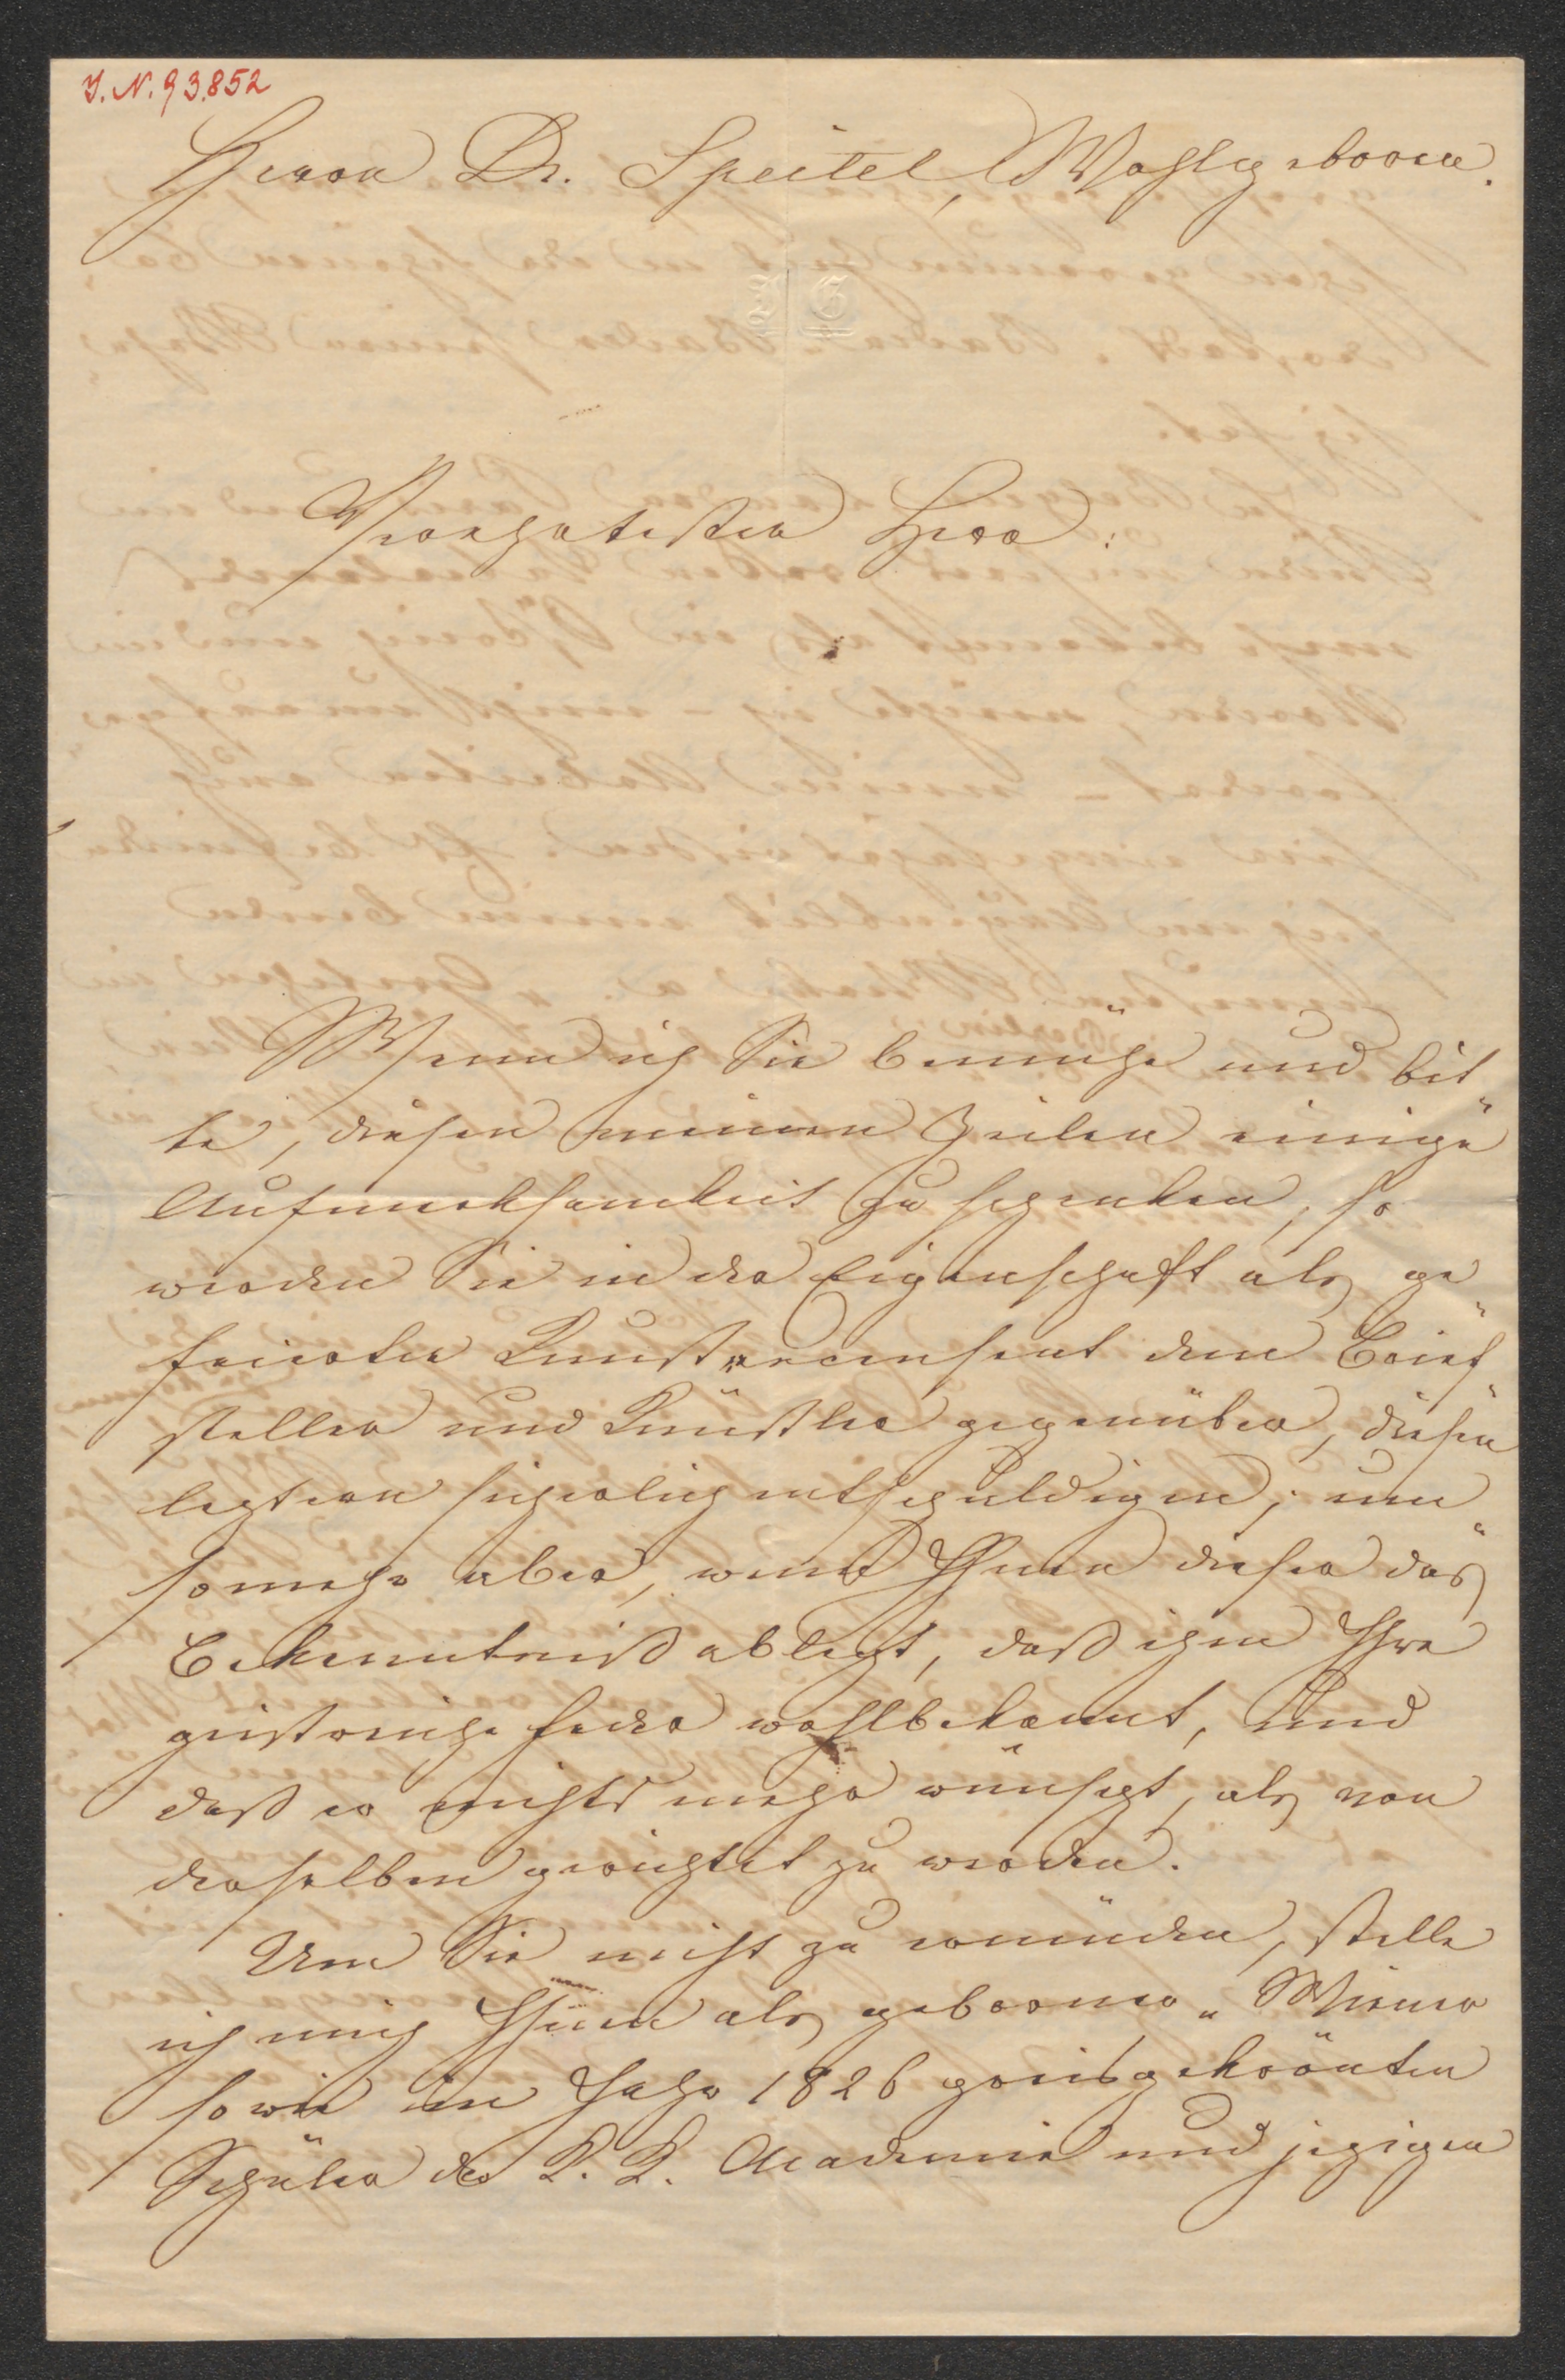 I. N. 93.852
Herrn Dr. Speitel, Wohlgeboren.
Verehrtester Herr:
Wenn ich Sie bemühe und bit„
te, diesen meinen Zeilen einige
Aufmerksamkeit zu schenken, so
werden Sie in der Eigenschaft als ge„
feierter Kunstrecensent dem Brief„
steller und Künstler gegenüber, diesen
letztern sicherlich entschuldigen; um„
somehr aber, wenn Ihnen dieser das
Bekenntniß ablegt, daß ihm Ihre
geistreiche Feder wohlbekannt, und
daß er nichts mehr wünscht, als von
derselben gerichtet zu werden.
Um Sie nicht zu ermüden, stelle
ich mich Ihnen als geborner „Wiener
sowie im Jahr 1826 preisgekrönten
Schüler der K. K. Academie und jezigen